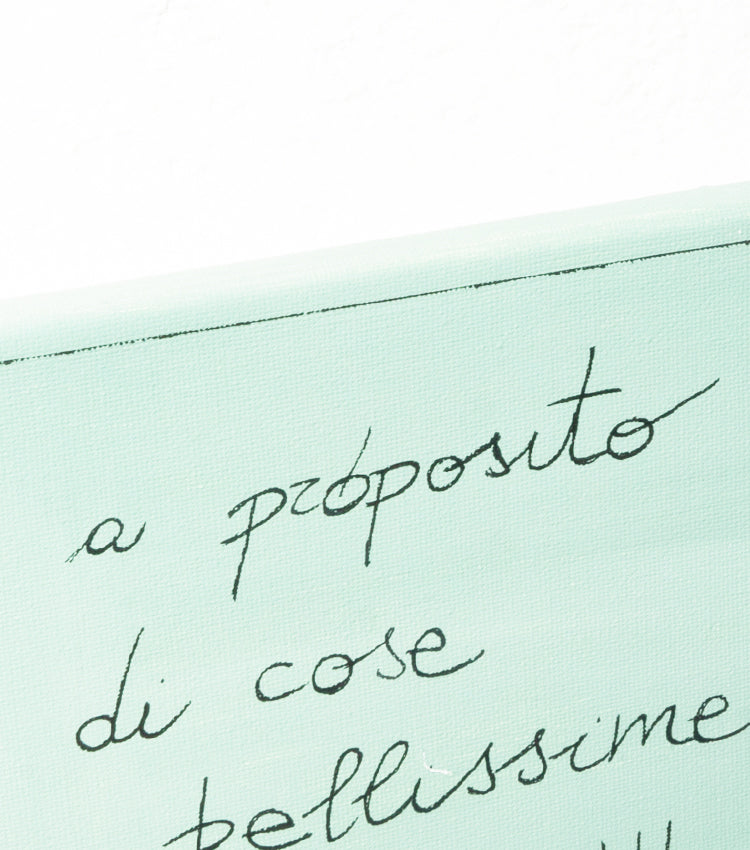 a proposito
di cose
bellissime